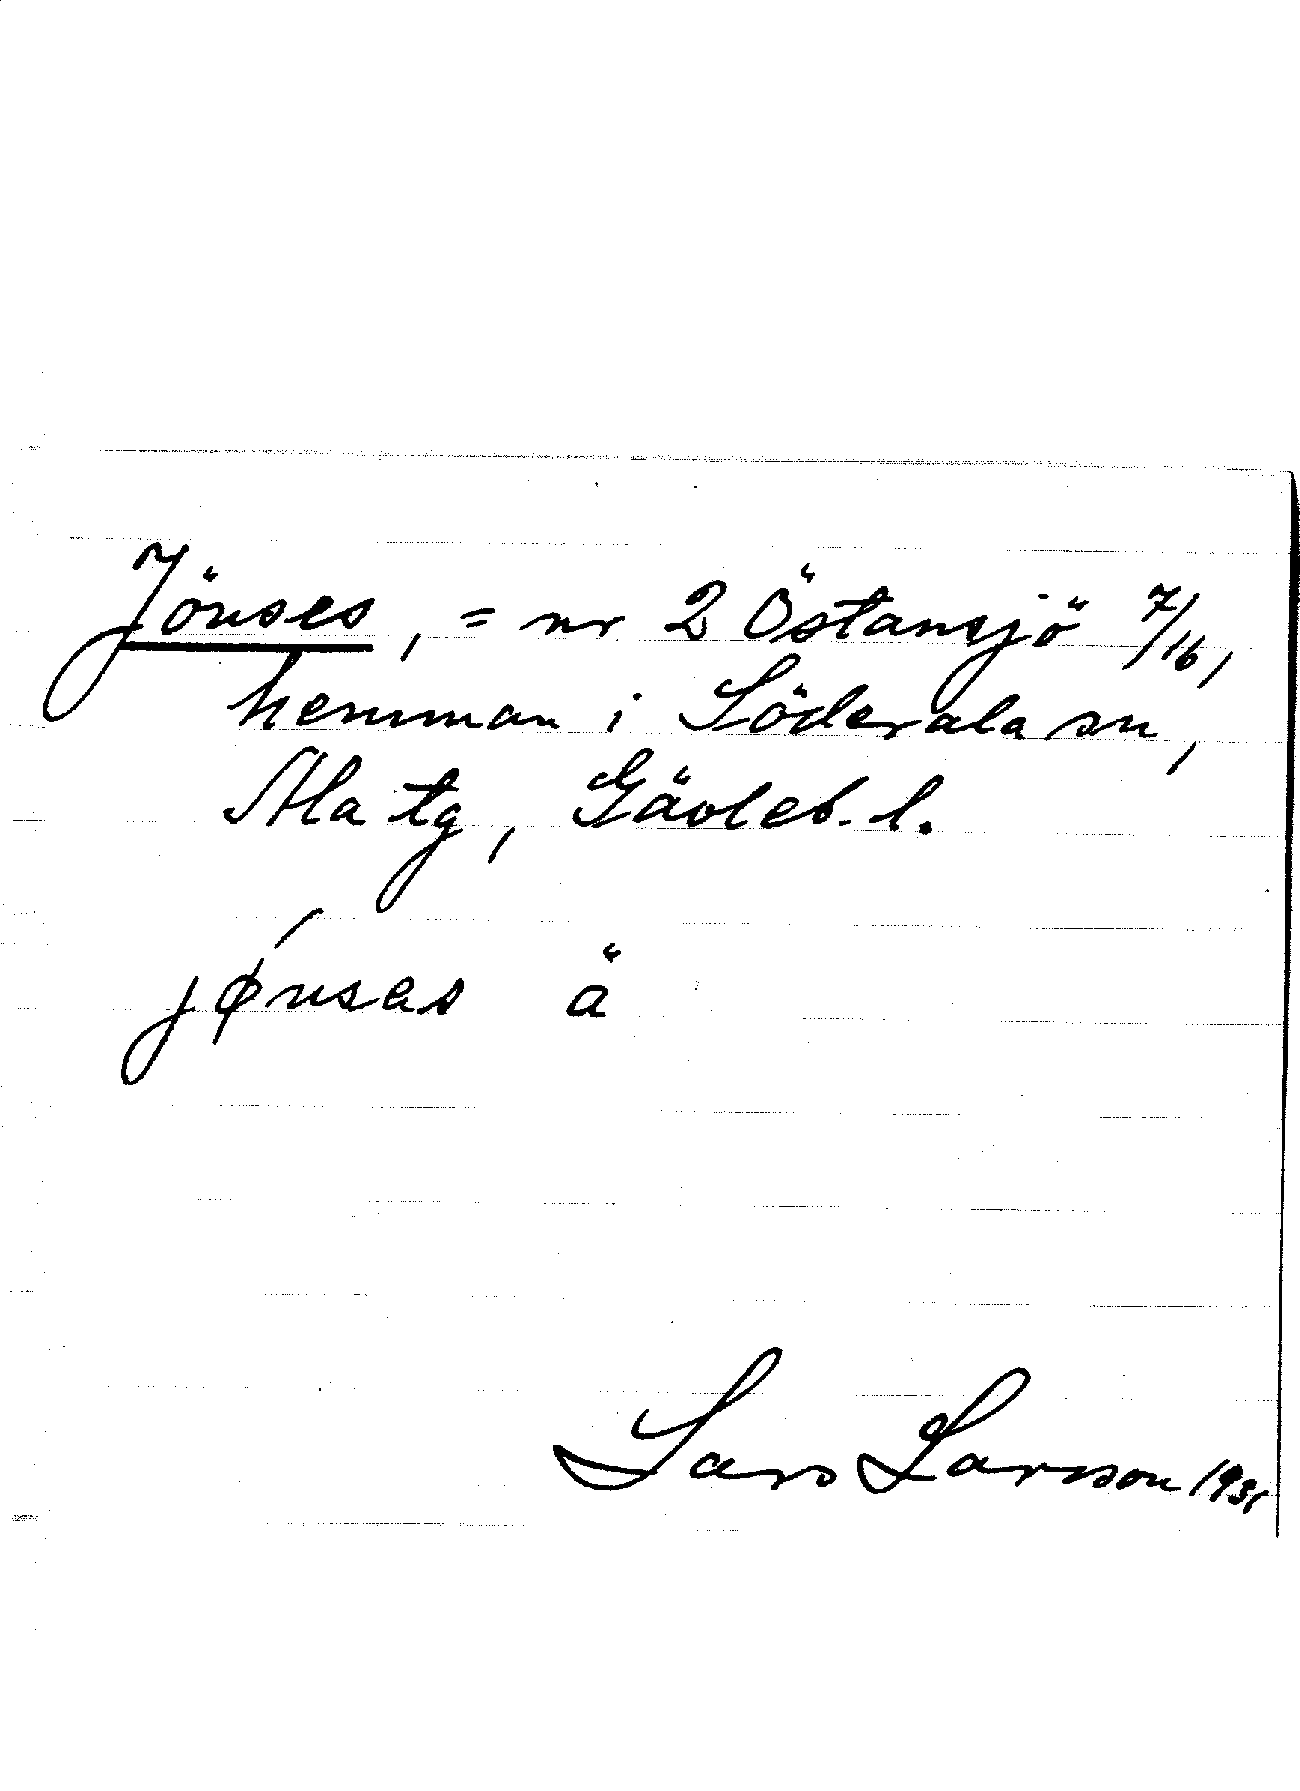 Jönses, = nr 2 Östansjö 7/16,
hemman i Söderala sn,
Ala tg, Gävleb. l.
jǿnsas ä
Lars Larsson 1931